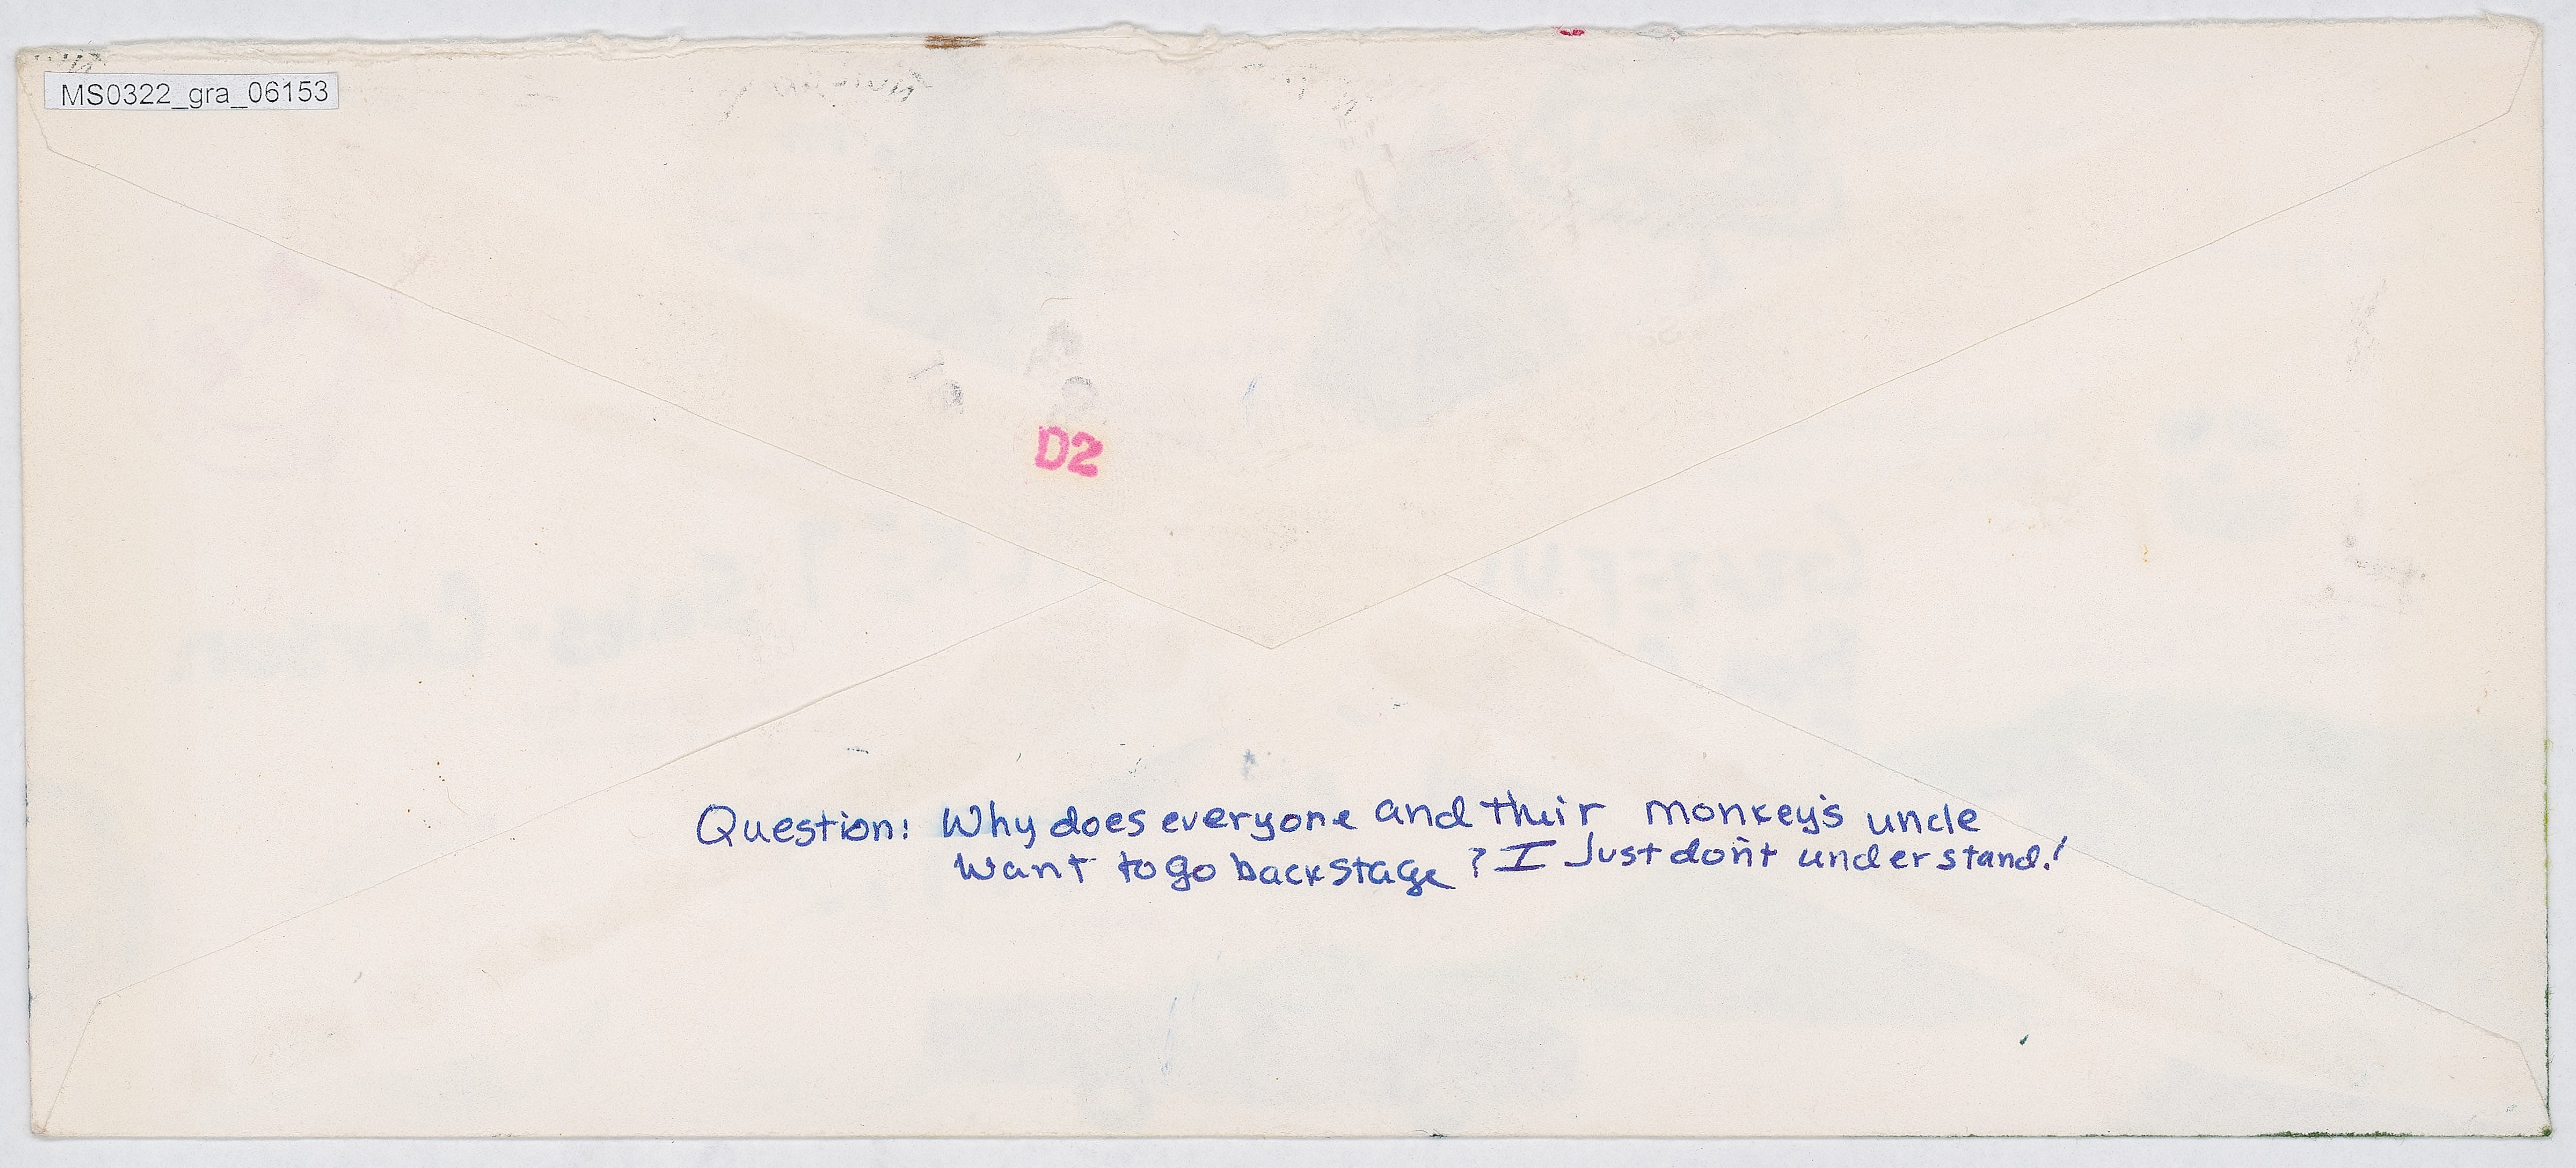 MS0322_gra_06153
D2
Question: Why does everyone and their monkey's uncle
want to go backstage? I Just don't understand!